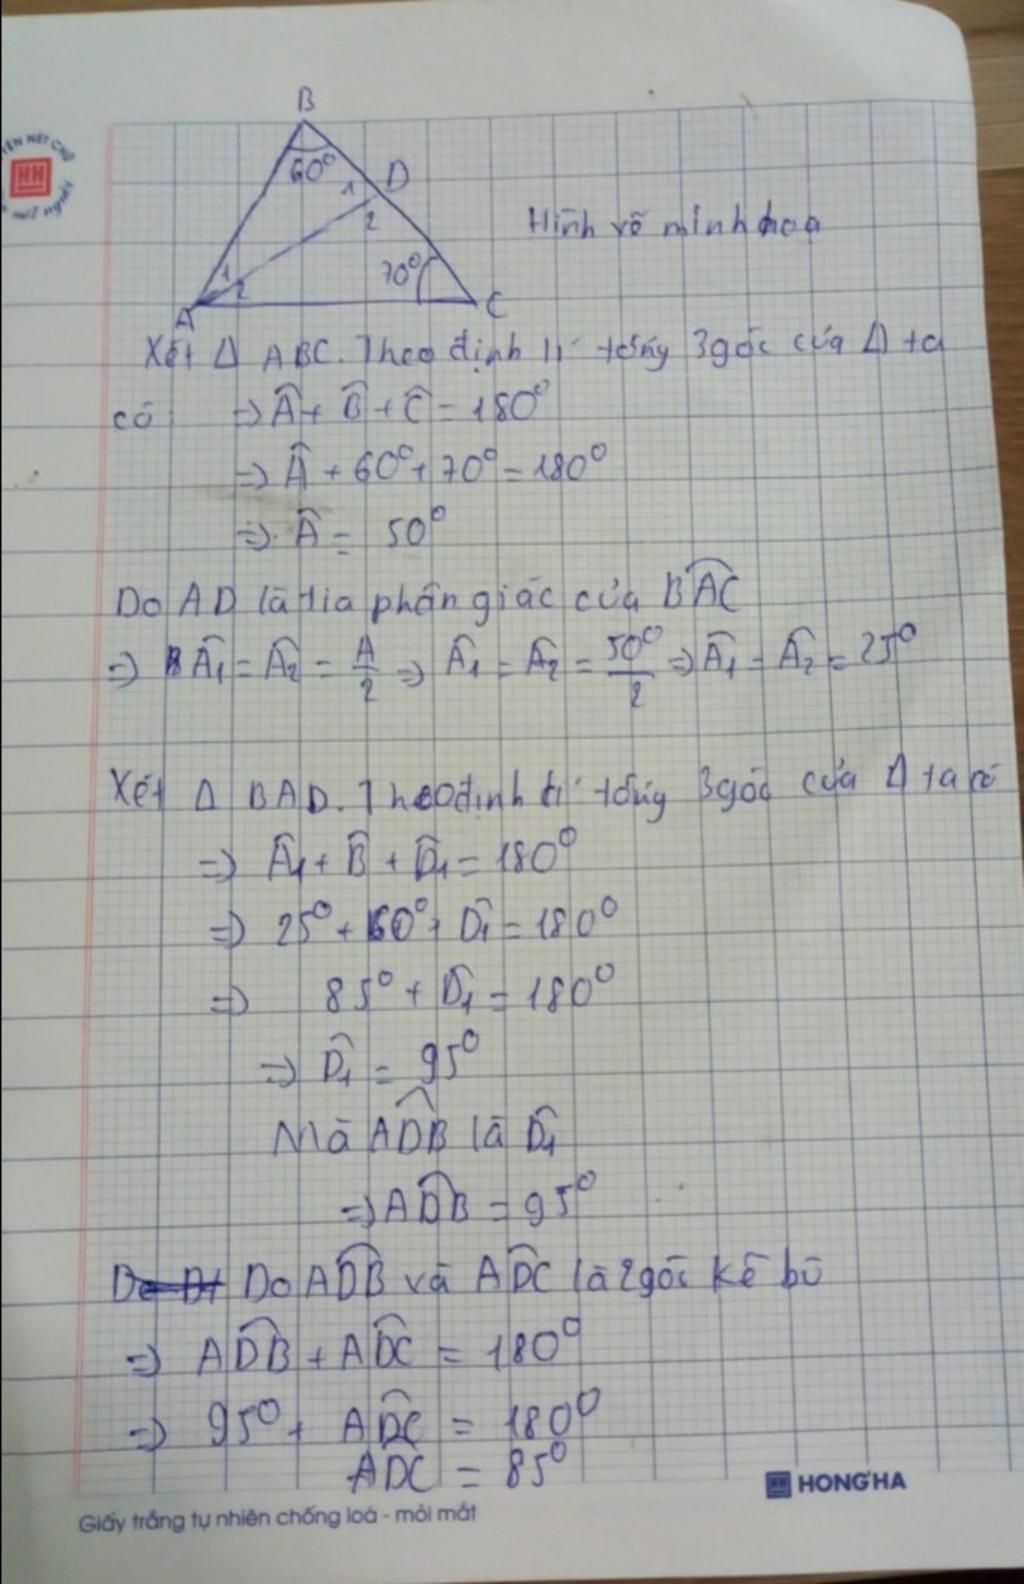 B
60°
1
D
2
Hình vẽ minh hoạ
70°
1
2
A
C
Xét Δ ABC. Theo định lí tổng 3 góc của Δ ta
có ⇒ Â + B̂ + Ĉ = 180°
⇒ Â + 60° + 70° = 180°
⇒ Â = 50°
Do AD là tia phân giác của BÂC
⇒ Â₁ = Â₂ = A/2 ⇒ Â₁ = Â₂ = 50°/2 ⇒ Â₁ = Â₂ = 25°
Xét Δ BAD. Theo định lí tổng 3 góc của Δ ta có
⇒ Â₁ + B̂ + D̂₁ = 180°
⇒ 25° + 60° + D̂₁ = 180°
⇒ 85° + D̂₁ = 180°
⇒ D̂₁ = 95°
Mà AD̂B là D̂₁
⇒ AD̂B = 95°
Do AD̂B và AD̂C là 2 góc kề bù
⇒ AD̂B + AD̂C = 180°
⇒ 95° + AD̂C = 180°
AD̂C = 85°
HONG HA
Giấy trắng tự nhiên chống loá - mỏi mắt